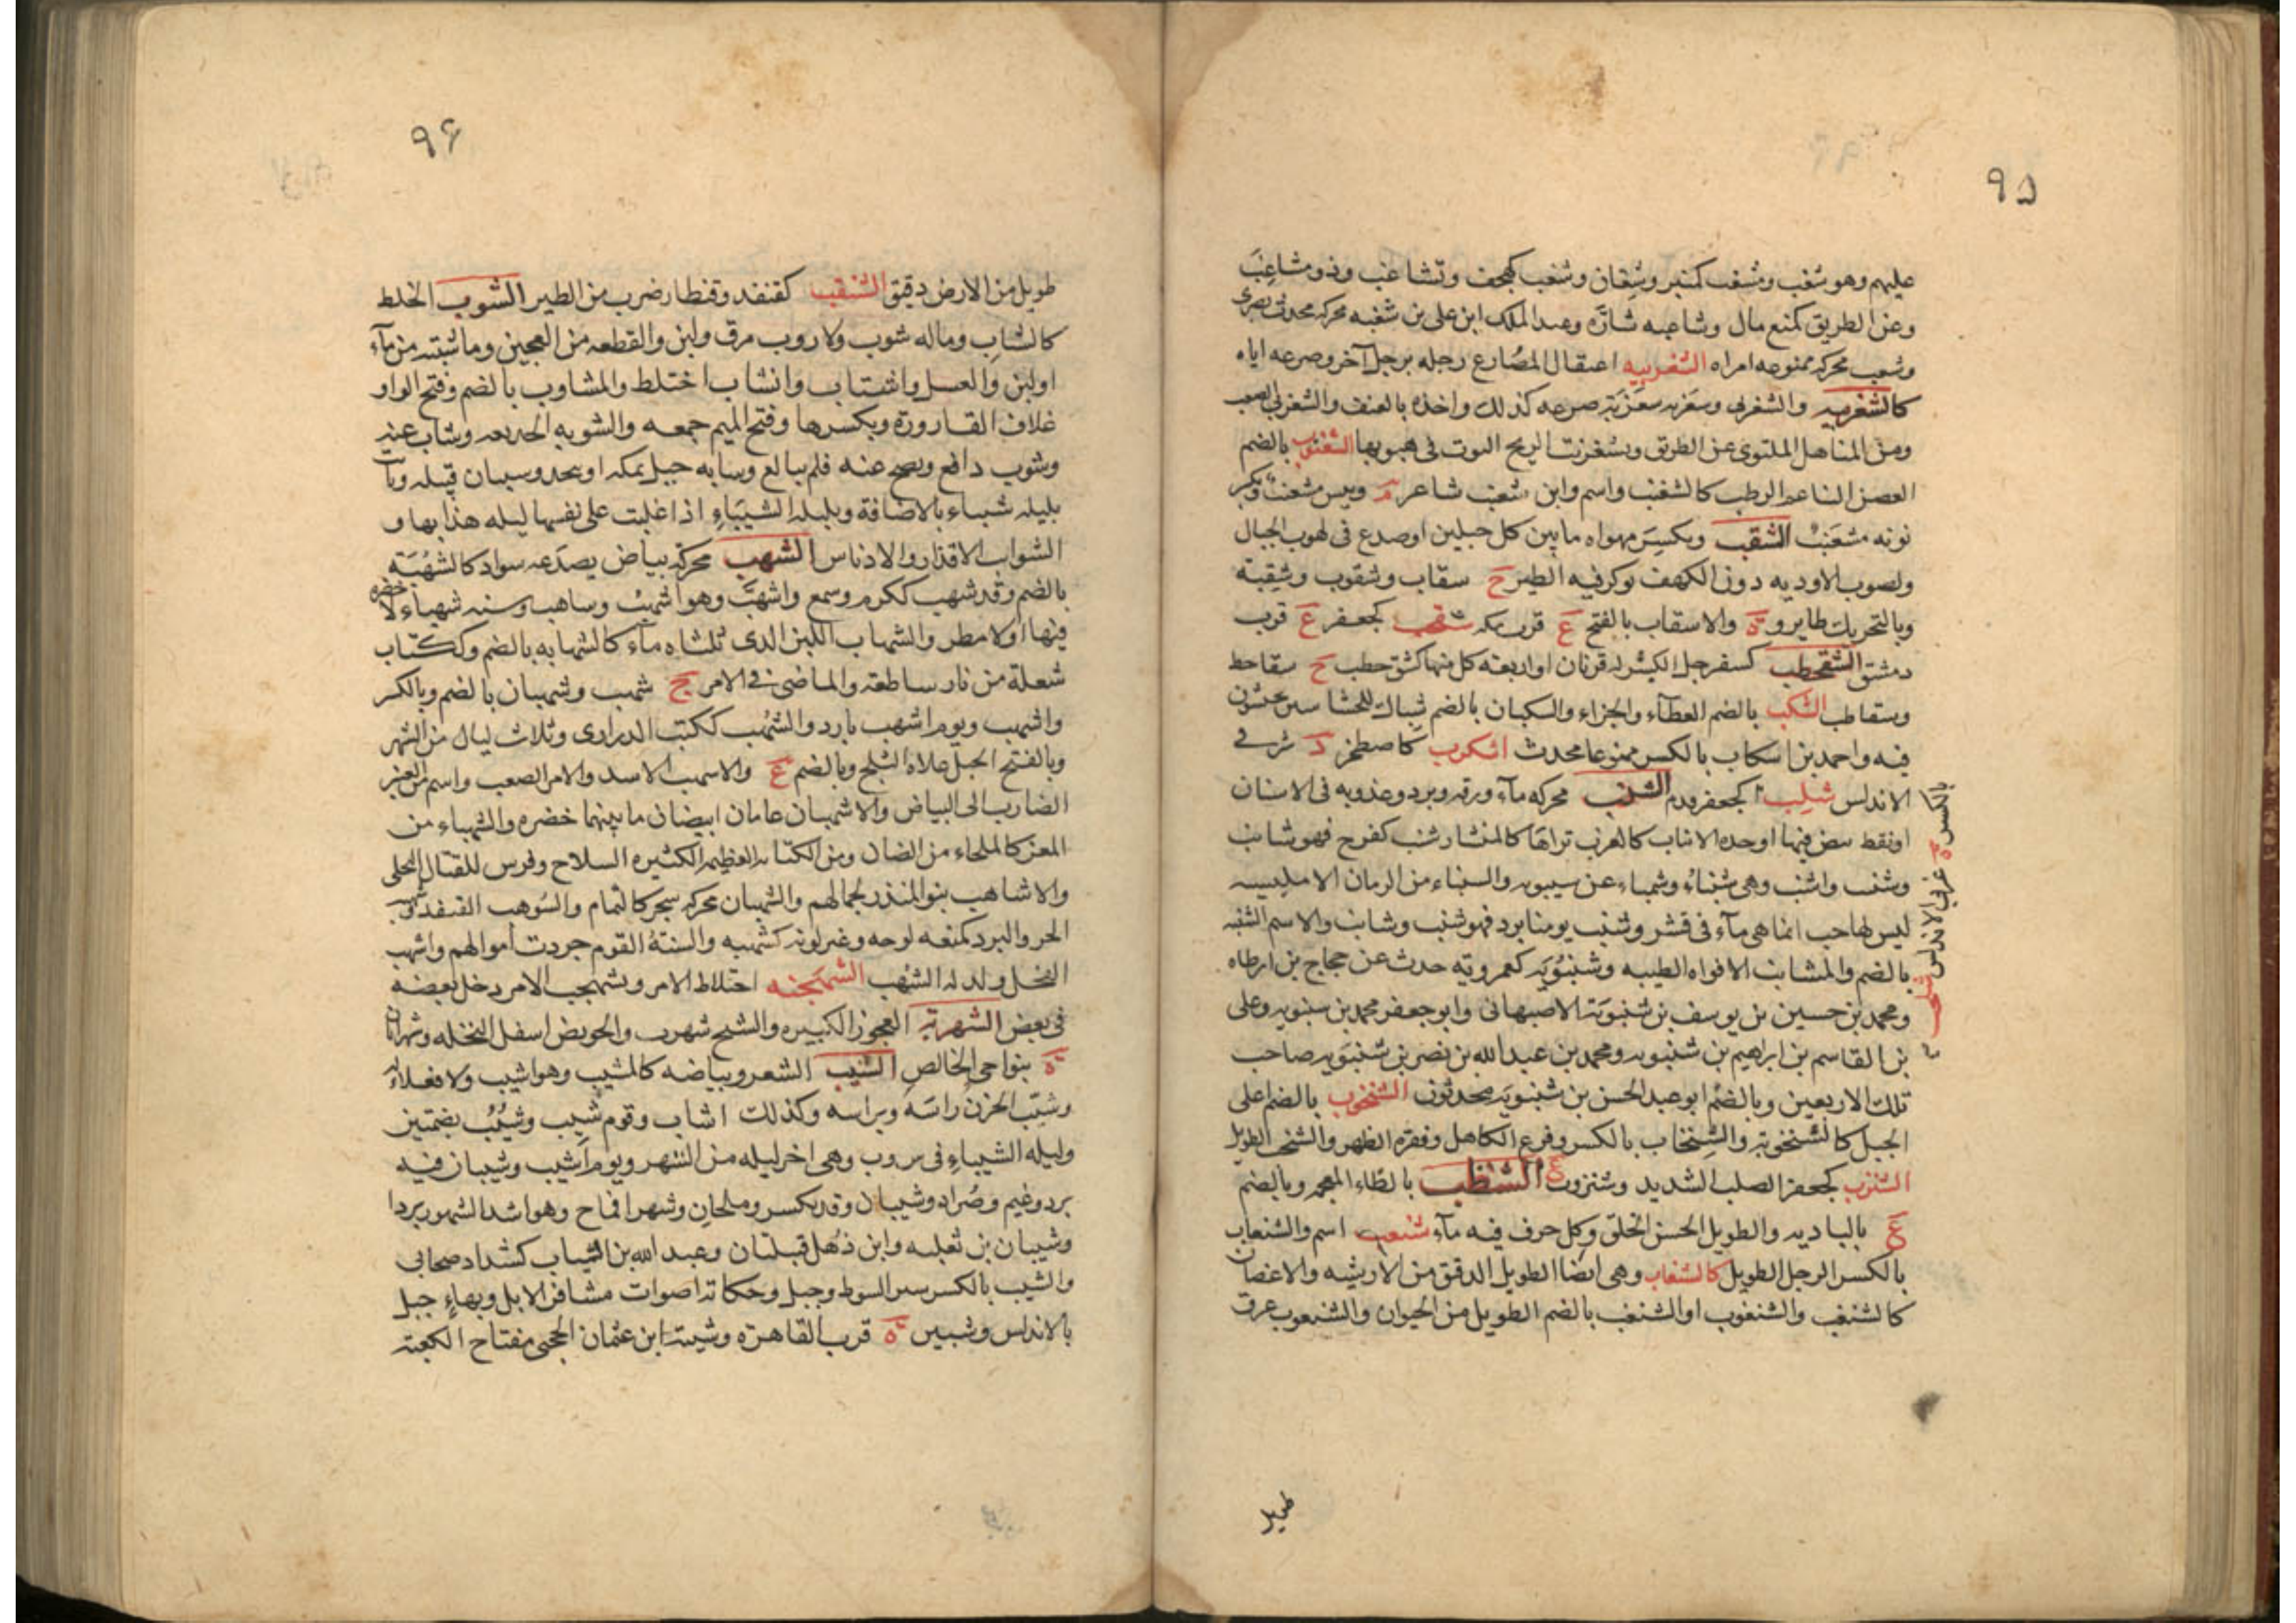 ٩٥
عليهم وهو شغب ومشغب كمنبر وشغان وشغب كهجف وتشاغب وذو مشاغب
وعن الطريق كمنع مال وشاعبه شاره وعبد الملك ابن على بن شغبه محركه محدث بصرى
وشعب محركه ممنوعه امراه الشغربيه اعتقال المصارع رجله برجل آخر وصرعه اياه
كالشغربيه والشغربى وشغربه شغزبة صرعه كذلك واخذه بالعنف والشغزبى الصعب
ومن المناهل الملتوى عن الطريق وتشغزبت الريح التوت فى هبوبها الشغنوب بالضم
الغصن الناعم الرطب كالشغنب واسم وابن شغنب شاعر م وتيس مشغنب وبكسر
نونه مشغنب الشقب ويكسر مهواه ما بين كل جبلين او صدع فى لهوب الجبال
ولصوب الاوديه دون الكهف توكر فيه الطير ج سقاب وشقوب وشقبة
وبالتحريك طاير وة والاسقاب بالفتح ع قرب مكه شقب كجعفر ع قرب
دمشق الشقحطب كسفرجل الكبش له قرنان او اربعه كل منها كشق حطب ج سقاحط
وسقاطب الشكب بالضم العطآء والجزاء والسكبان بالضم شباك للحشاسين يحتشون
فيه واحمد بن اسكاب بالكسر ممنوعا محدث اشكرب كاصطخر د شرقى
الاندلس شلب كجعفر فدم الشنب محركه مآء ورقه وبرد وعذوبه فى الاسنان
او نقط بيض فيها او حده الانياب كالغرب تراها كالمنشار شنب كفرح فهو شانب
وشنب واشنب وهى شنباء وشمباء عن سيبويه والشنباء من الرمان الامليسيه
ليس لها حب انما هى مآء فى قشر وشنب يومنا برد فهو شنب وشانب والاسم الشنبه
بالضم والمشانب الافواه الطيبه وشنبويه كعمرويه حدث عن حجاج بن ارطاه
ومحمد بن حسين بن يوسف بن شنبويه الاصبهانى وابو جعفر محمد بن سنبويه وعلى
بن القاسم بن ابراهيم بن شنبويه ومحمد بن عبد الله بن نصر بن شنبويه صاحب
تلك الاربعين وبالضم ابو عبد الحسن بن شنبويه محدثون الشنخوب بالضم اعلى
الجبل كالشنخوبة والشنخاب بالكسر وفرع الكاهل وفقره الظهر والشنخب الطويل
الشنزب كجعفر الصلب الشديد وشنزوب ع الشنظب بالظاء المعجمه وبالضم
ع بالباديه والطويل الحسن الخلق وكل جرف فيه مآء شنعب اسم والشنعاب
بالكسر الرجل الطويل كالشنغاب وهى ايضا الطويل الدقيق من الارشيه والاغصان
كالشنغب والشنغوب او الشنغب بالضم الطويل من الحيوان والشنغوب عرق
بالكسر ة غربى الاندلس شلحب
طويل
٩٦
طويل من الارض دقيق الشنقب كقنفد وقنطار ضرب من الطير الشوب الخلط
كالشياب وماله شوب ولا روب مرق ولبن والقطعه من العجين وما شبته من مآء
او لبن والعسل واشتاب وانشاب اختلط والمشاوب بالضم وفتح الواو
غلاف القاروره وبكسرها وفتح الميم جمعه والشوبه الخديعه وشاب عنه
وشوب دافع ونصح عنه فلم يبالغ وسابه جبل بمكه او بنجد وسيبان قبيله وبات
بليله شيباء بالاضافة وبليلة الشيباء اذا غلبت على نفسها ليله هدابها و
الشوايب الاقذار والادناس الشهب محركه بياض يصدعه سواد كالشهبة
بالضم وقد شهب ككرم وسمع واشهب وهو اشهب وساهب وسنه شهباء لا خضره
فيها او لا مطر والشهاب اللبن الذى ثلثاه مآء كالشهابه بالضم وككتاب
شعلة من نار ساطعة والماضى فى الامر ج شهب وشهبان بالضم وبالكسر
واشهب ويوم اشهب بارد والشهب ككتب الدرارى وثلاث ليال من الشهر
وبالفتح الجبل علاه الثلج وبالضم ع والاسهب الاسد والامر الصعب واسم من العنبر
الضارب الى البياض والاشهبان عامان ابيضان ما بينهما خضره والشهباء من
المعز كالملحاء من الضان ومن الكتايب العظيمه الكثيره السلاح وفرس للقتال البجلى
والاشاهب بنو المنذر لجمالهم والشهبان محركه شجر كالثمام والشوهب القنفذ وشهبه
الحر والبرد كمنعه لوحه وغير لونه كشهبه والسنة القوم جردت أموالهم واشهب
الفحل ولد له الشهب الشهجبه اختلاط الامر وتشهجب الامر دخل بعضه
فى بعض الشهربة العجوز الكبيره والشيخ شهرب والحويض اسفل النخله وشهرابان
ة بنواحى الخالص الشيب الشعر وبياضه كالمشيب وهو اشيب ولا فعلاء له
وشيب الحزن راسه وبراسه وكذلك اشاب وقوم شيب وشيب بضمتين
وليله الشيباء فى س وب وهى اخر ليله من الشهر ويوم أشيب وشيبان فيه
برد وغيم وصراد وشيبان وقد يكسر وملحان وشهرا قماح وهو اشد الشهور بردا
وشيبان بن ثعلبه وابن ذهل قبيلتان وعبد الله بن الشياب كشداد صحابى
والشيب بالكسر سير السوط وجبل وحكاية اصوات مشافر الابل وبهاء جبل
بالاندلس وشيبين ة قرب القاهرة وشيبة ابن عثمان الحجبى مفتاح الكعبة